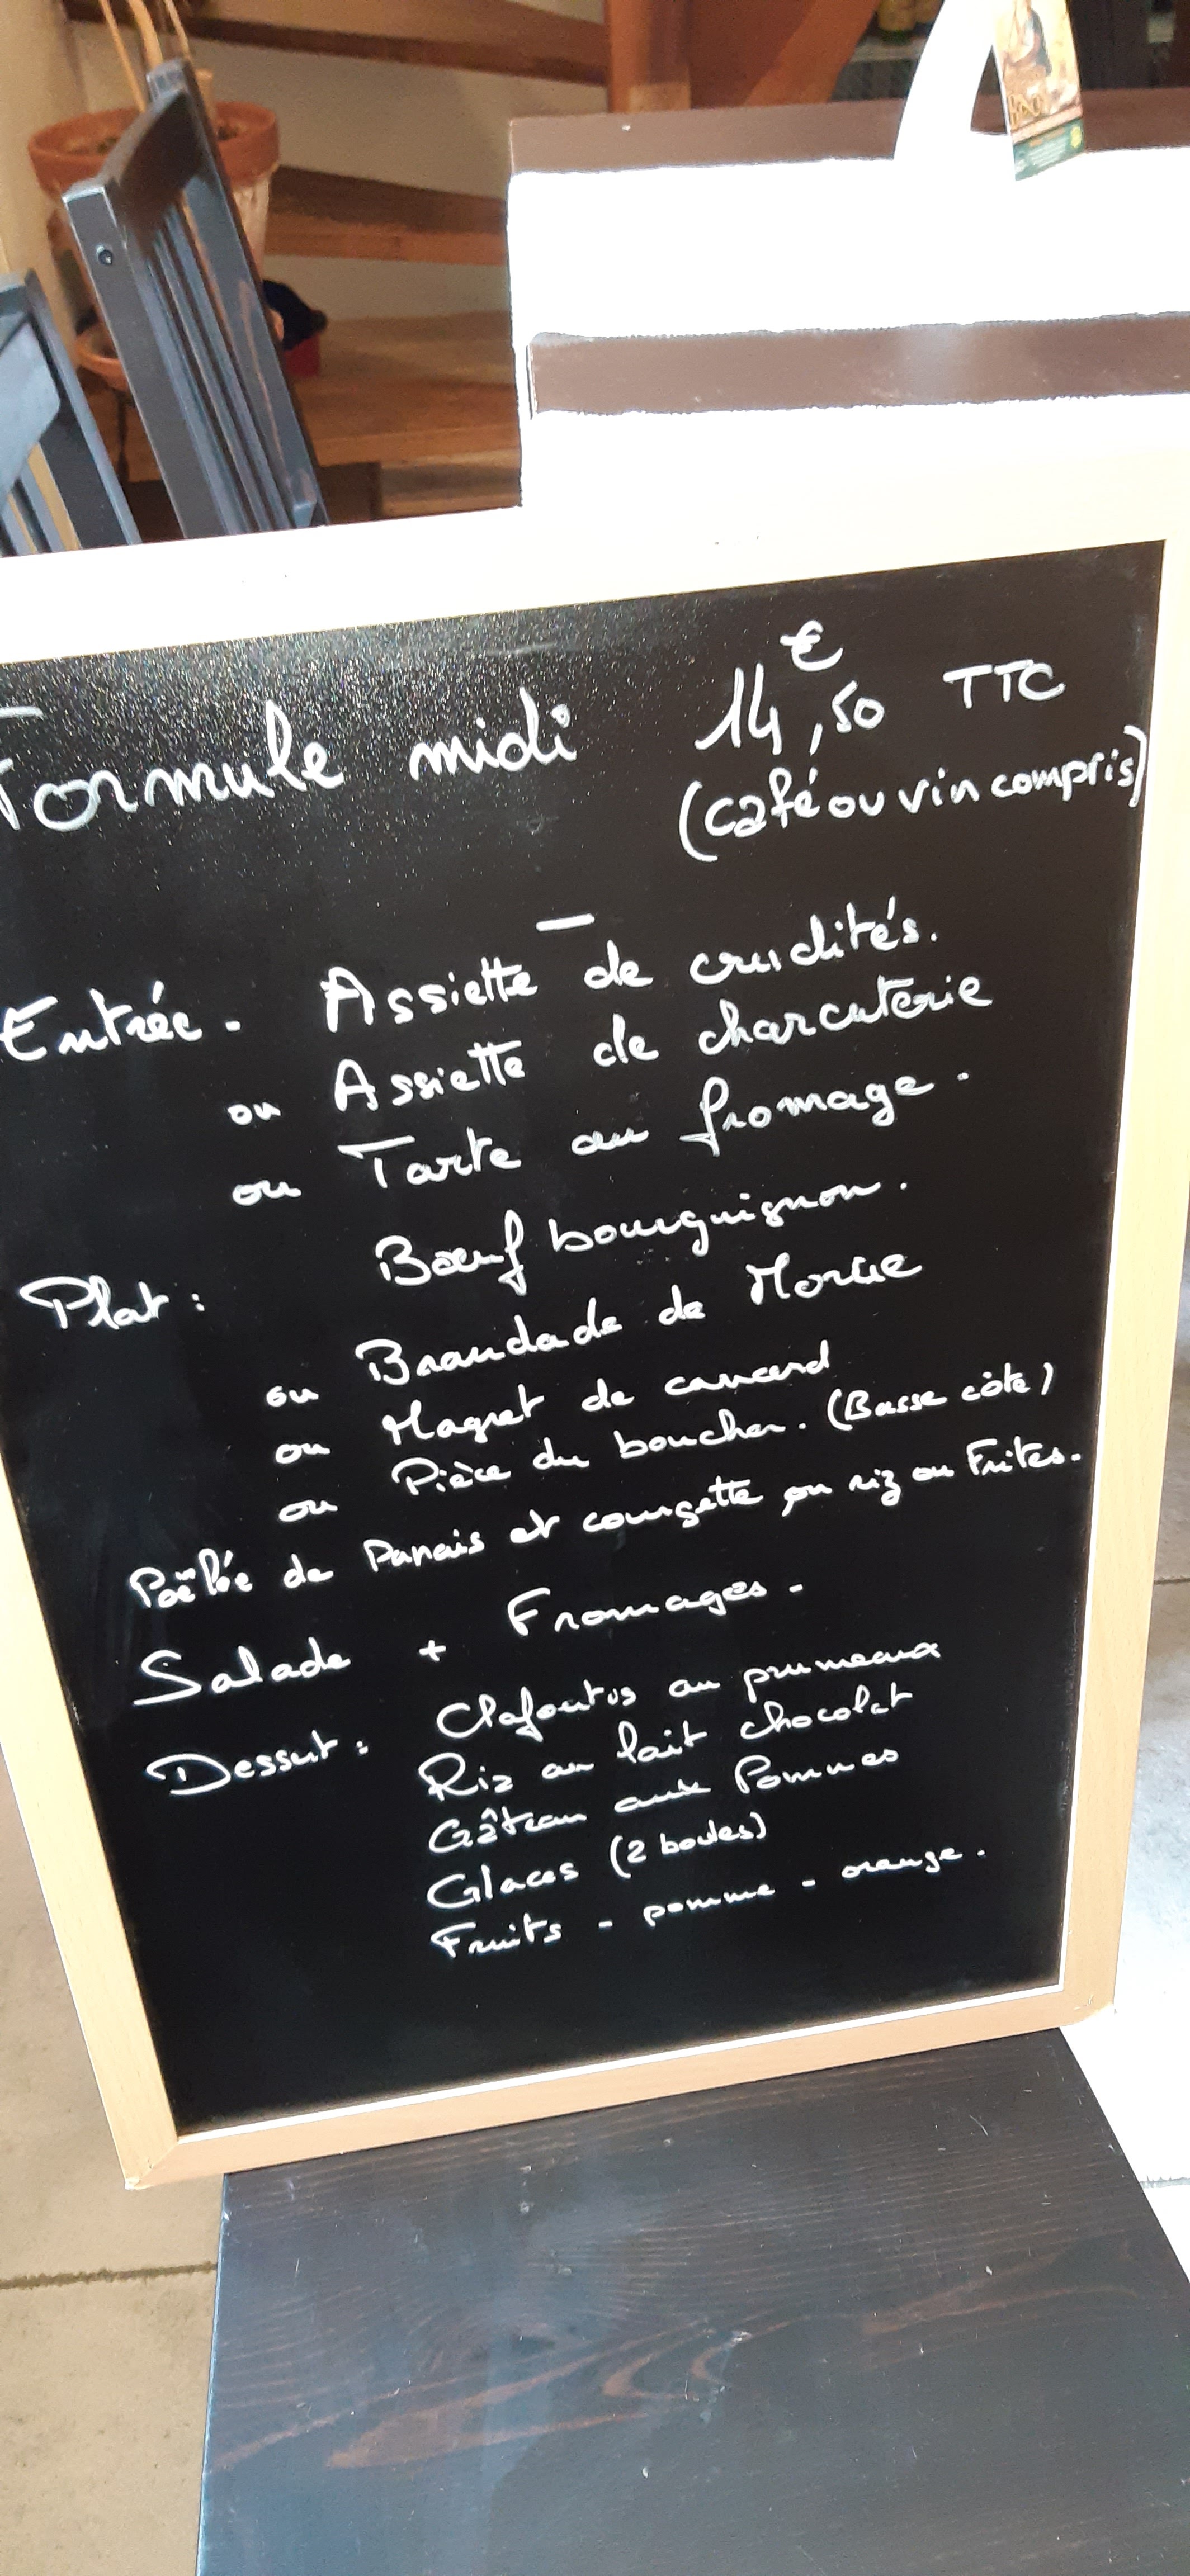 Formule midi 14,50 € TTC
(café ou vin compris)
—
Entrée. Assiette de crudités.
ou Assiette de charcuterie
ou Tarte au fromage.
Plat: Bœuf bourguignon.
ou Brandade de Morue
ou Magret de canard
ou Pièce du boucher. (Basse côte)
Poëlée de Panais et courgette ou riz ou Frites.
Salade + Fromages -
Dessert: Clafoutis au pruneaux
Riz au lait chocolat
Gâteau aux Pommes
Glaces (2 boules)
Fruits - pomme - orange.